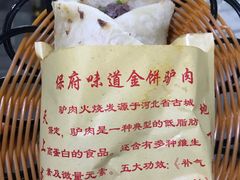 保府味道金饼驴肉
驴肉火烧发源于河北省古城
驴肉是一种典型的低脂肪
高蛋白的食品，还含有多种维生
素及微量元素，五大功效：《补气